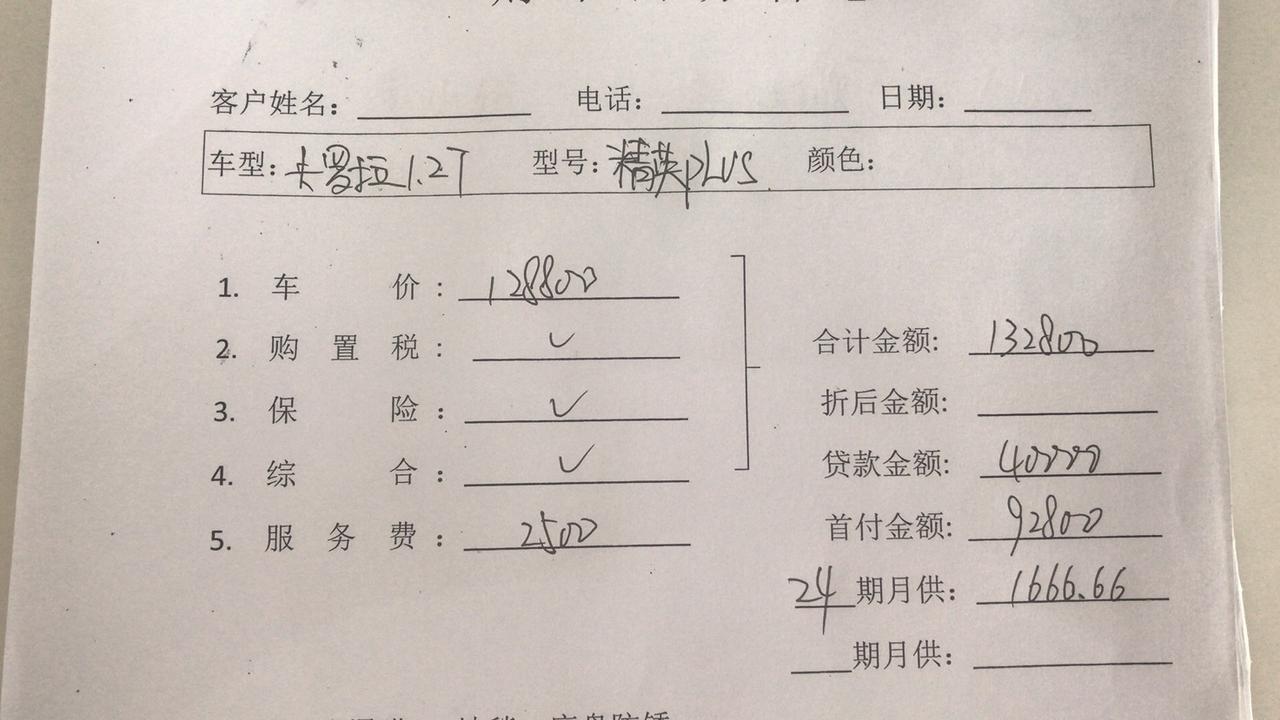 客户姓名： 电话： 日期：
车型：卡罗拉1.2T 型号：精英PLUS 颜色：
1. 车价：128800
2. 购置税：✓
3. 保险：✓
4. 综合：✓
5. 服务费：2500
合计金额：132800
折后金额：
贷款金额：40000
首付金额：92800
24期月供：1666.66
期月供：